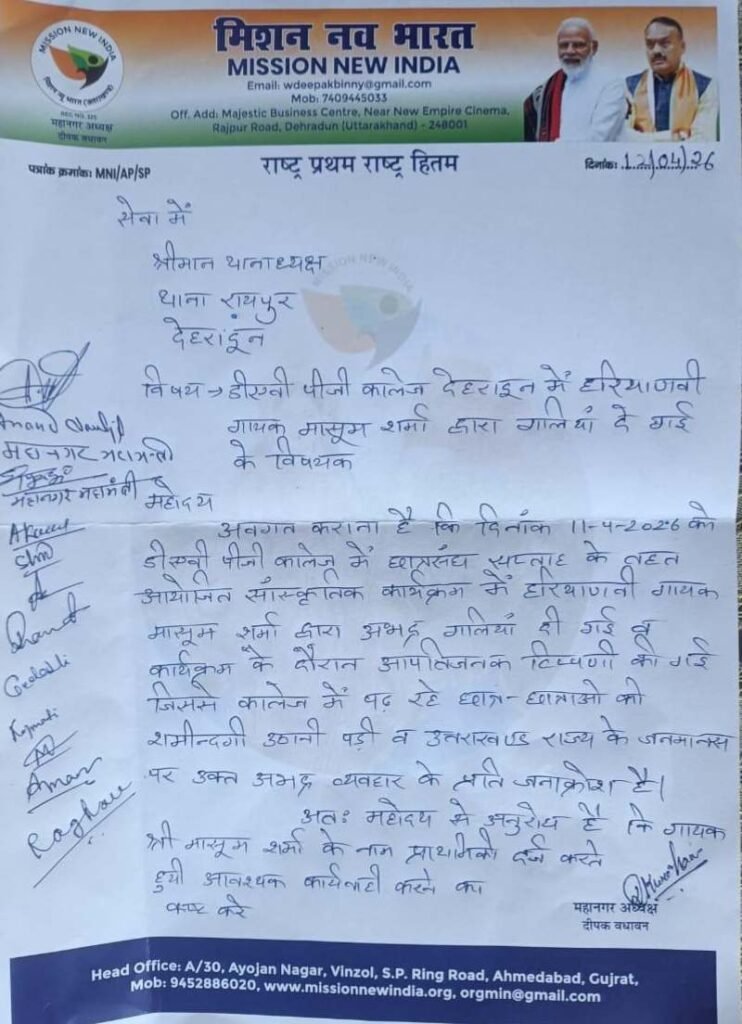 मिशन नव भारत
MISSION NEW INDIA
Email: wdeepakbinny@gmail.com
Mob: 7409445033
Off. Add: Majestic Business Centre, Near New Empire Cinema,
Rajpur Road, Dehradun (Uttarakhand) - 248001
MISSION NEW INDIA
महानगर अध्यक्ष
दीपक वधावन
पत्रांक क्रमांक: MNI/AP/SP
राष्ट्र प्रथम राष्ट्र हितम
दिनांक: 12/04/26
सेवा में
श्रीमान थानाध्यक्ष
थाना रायपुर
देहरादून
विषय → डीएवी पीजी कालेज देहरादून में हरियाणवी
गायक मासूम शर्मा द्वारा गालियां दे गई
के विषयक
महोदय
अवगत कराना है कि दिनांक 11-4-2026 को
डीएवी पीजी कालेज में छात्रसंघ सप्ताह के तहत
आयोजित सांस्कृतिक कार्यक्रम में हरियाणवी गायक
मासूम शर्मा द्वारा अभद्र गालियाँ दी गई व
कार्यक्रम के दौरान आपतिजनक टिप्पणी की गई
जिससे कालेज में पढ़ रहे छात्र-छात्राओ को
शर्मीन्दगी उठानी पड़ी व उत्तराखण्ड राज्य के जनमानस
पर उक्त अभद्र व्यवहार के प्रति जनाक्रोश है।
अतः महोदय से अनुरोध है कि गायक
श्री मासूम शर्मा के नाम प्राथमिकी दर्ज करते
हुयी आवश्यक कार्यवाही करने का
कष्ट करे
महानगर महामंत्री
महानगर महामंत्री
Aman
Raghav
महानगर अध्यक्ष
दीपक वधावन
Head Office: A/30, Ayojan Nagar, Vinzol, S.P. Ring Road, Ahmedabad, Gujrat,
Mob: 9452886020, www.missionnewindia.org, orgmin@gmail.com